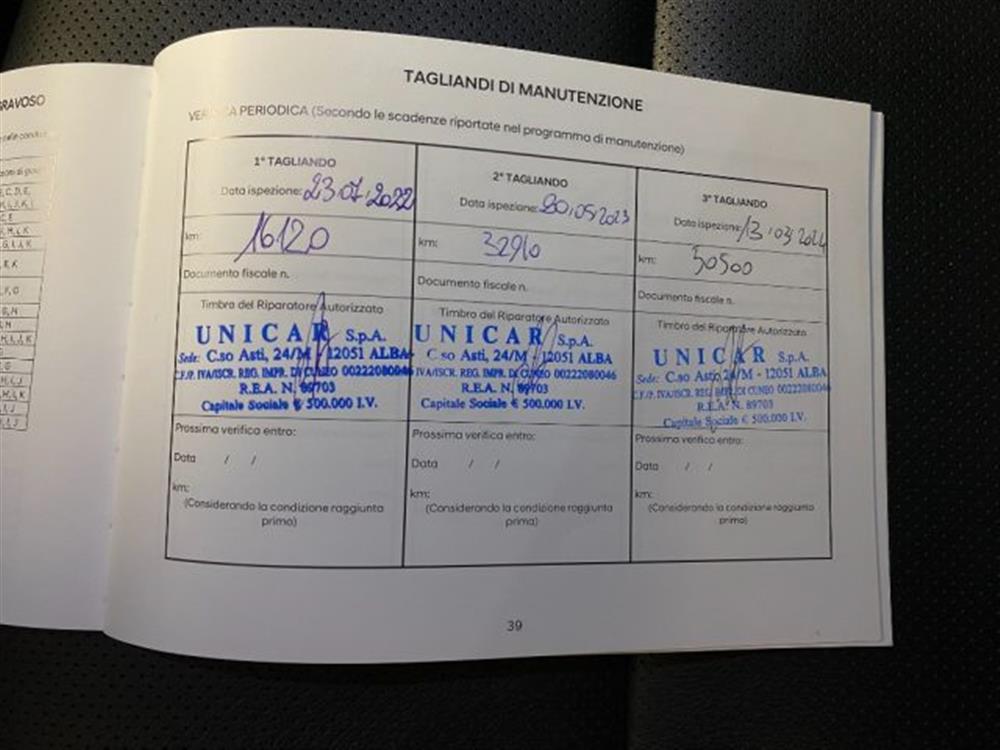 TAGLIANDI DI MANUTENZIONE
PERIODICA (Secondo le scadenze riportate nel programma di manutenzione)
1° TAGLIANDO
Data ispezione: 23.07.2022
km: 16120
Documento fiscale n.
Timbro del Riparatore Autorizzato
UNICAR S.p.A.
Sede: C.so Asti, 24/M - 12051 ALBA
C.F./P. IVA/ISCR. REG. IMPR. DI CUNEO 00222080046
R.E.A. N. 89703
Capitale Sociale € 500.000 I.V.
Prossima verifica entro:
Data / /
km:
(Considerando la condizione raggiunta
prima)
2° TAGLIANDO
Data ispezione: 20.05.2023
km: 32910
Documento fiscale n.
Timbro del Riparatore Autorizzato
UNICAR S.p.A.
C.so Asti, 24/M - 12051 ALBA
IVA/ISCR. REG. IMPR. DI CUNEO 00222080046
R.E.A. N. 89703
Capitale Sociale € 500.000 I.V.
Prossima verifica entro:
Data / /
km:
(Considerando la condizione raggiunta
prima)
3° TAGLIANDO
Data ispezione: 13.03.2024
km: 50500
Documento fiscale n.
Timbro del Riparatore Autorizzato
UNICAR S.p.A.
Sede: C.so Asti, 24/M - 12051 ALBA
C.F./P. IVA/ISCR. REG. IMPR. DI CUNEO 00222080046
R.E.A. N. 89703
Capitale Sociale € 500.000 I.V.
Prossima verifica entro:
Data / /
km:
(Considerando la condizione raggiunta
prima)
39